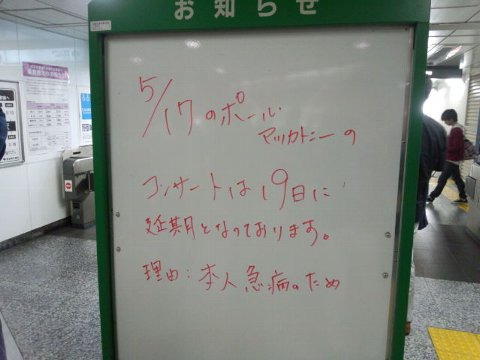 お知らせ
5/17のポール
マッカトニーの
コンサートは19日に
延期となっております。
理由:本人急病のため